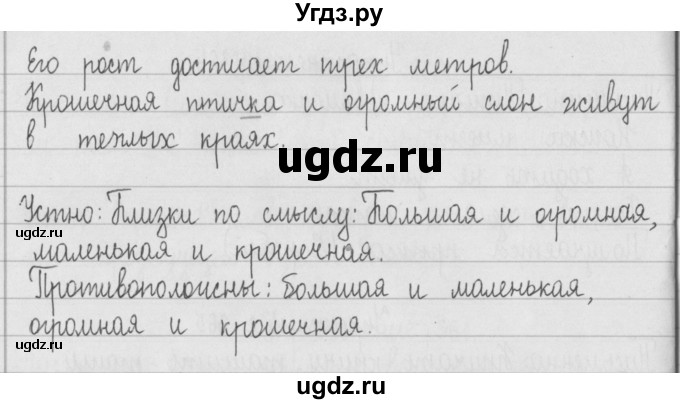 Угдз.ру
Его рост достигает трех метров.
Крошечная птичка и огромный слон живут
в теплых краях.
ugdz.ru
Устно: Близки по смыслу: Большая и огромная,
маленькая и крошечная.
Противоположны: большая и маленькая,
огромная и крошечная.
ugdz.ru
ugdz.ru